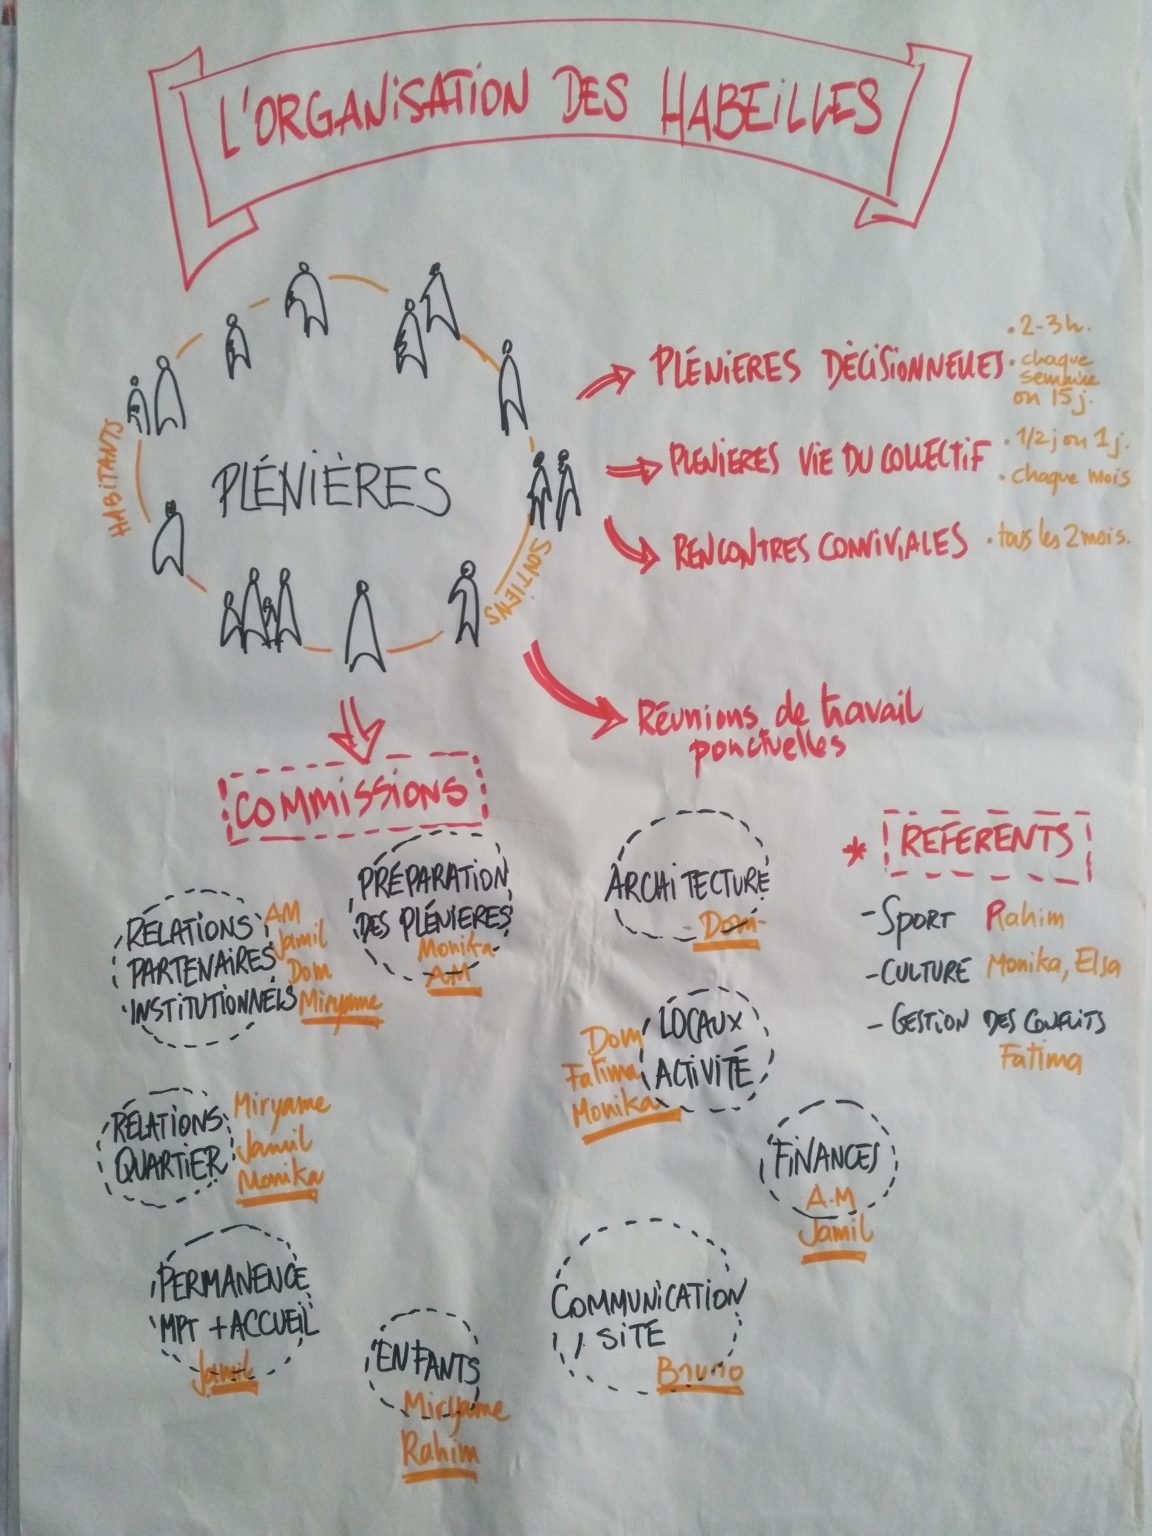 L'ORGANISATION DES HABEILLES
HABITANTS
PLÉNIÈRES
SOUTIENS
PLÉNIERES DÉCISIONNELLES
• 2-3h.
• chaque
semaine
ou 15j.
PLENIERES VIE DU COLLECTIF
• 1/2j ou 1j.
• chaque mois
RENCONTRES CONVIVIALES
• tous les 2 mois.
Réunions de travail
ponctuelles
COMMISSIONS
PRÉPARATION
DES PLÉNIERES
Monika
AM
RELATIONS
PARTENAIRES
INSTITUTIONNELS
AM
Jamil
Dom
Miryame
RELATIONS
QUARTIER
Miryame
Jamil
Monika
PERMANENCE
MPT + ACCUEIL
Jamil
ENFANTS
Miryame
Rahim
ARCHITECTURE
- Dom -
LOCAUX
ACTIVITÉ
Dom
Fatima
Monika
FINANCES
A.M
Jamil
COMMUNICATION
/ SITE
Bruno
* RÉFÉRENTS
- SPORT Rahim
- CULTURE Monika, Elsa
- GESTION DES CONFLITS
Fatima